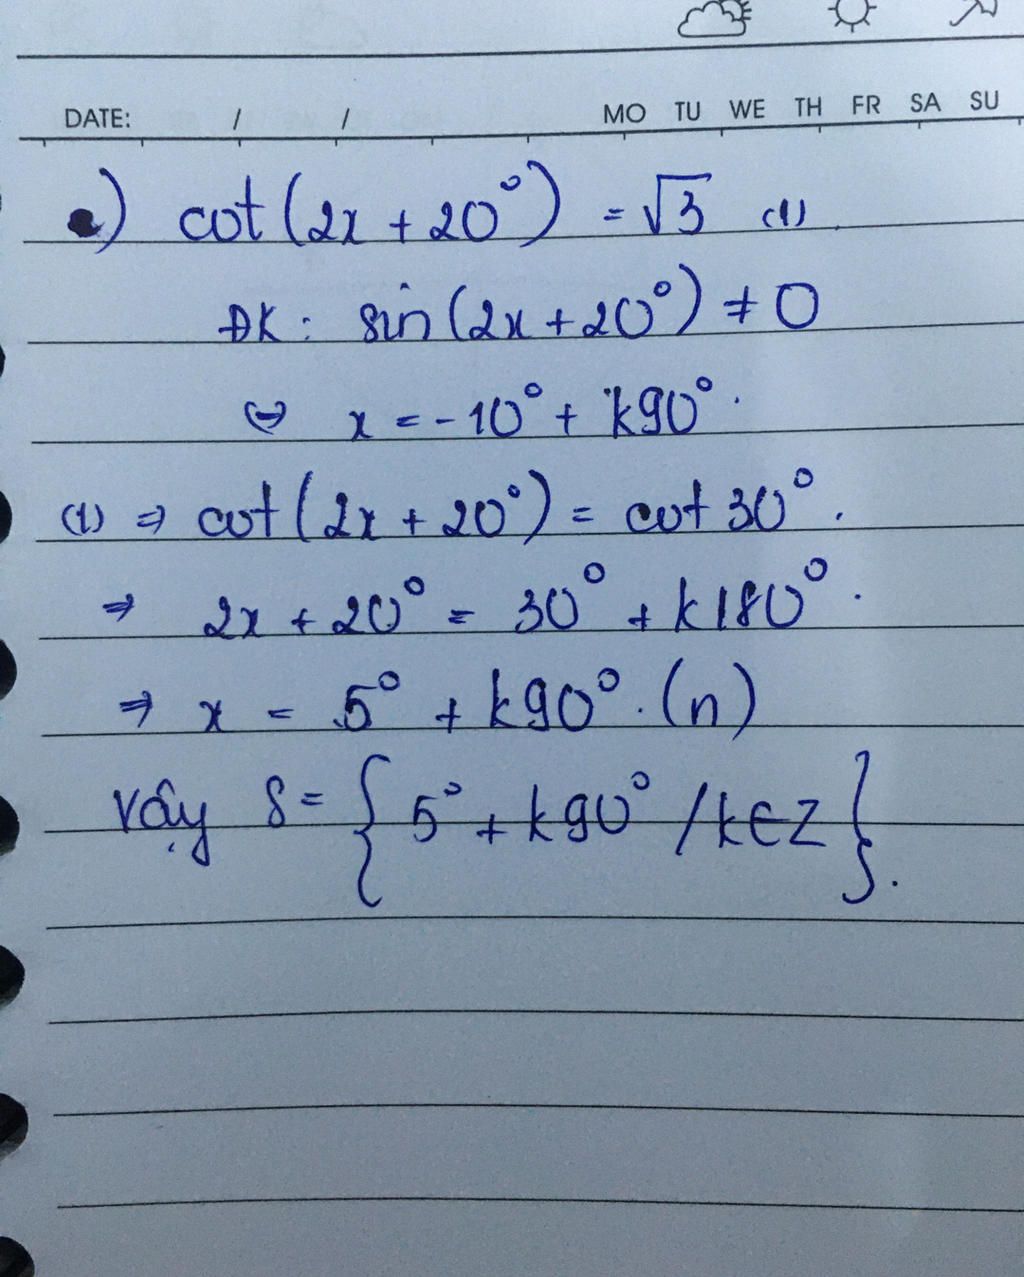 DATE: / / MO TU WE TH FR SA SU
) cot(2x + 20°) = √3 (1)
ĐK: sin(2x + 20°) ≠ 0
⇔ x = -10° + k90°.
(1) ⇒ cot(2x + 20°) = cot 30°.
⇒ 2x + 20° = 30° + k180°.
⇒ x = 5° + k90°. (n)
Vậy S = { 5° + k90° / k∈Z }.